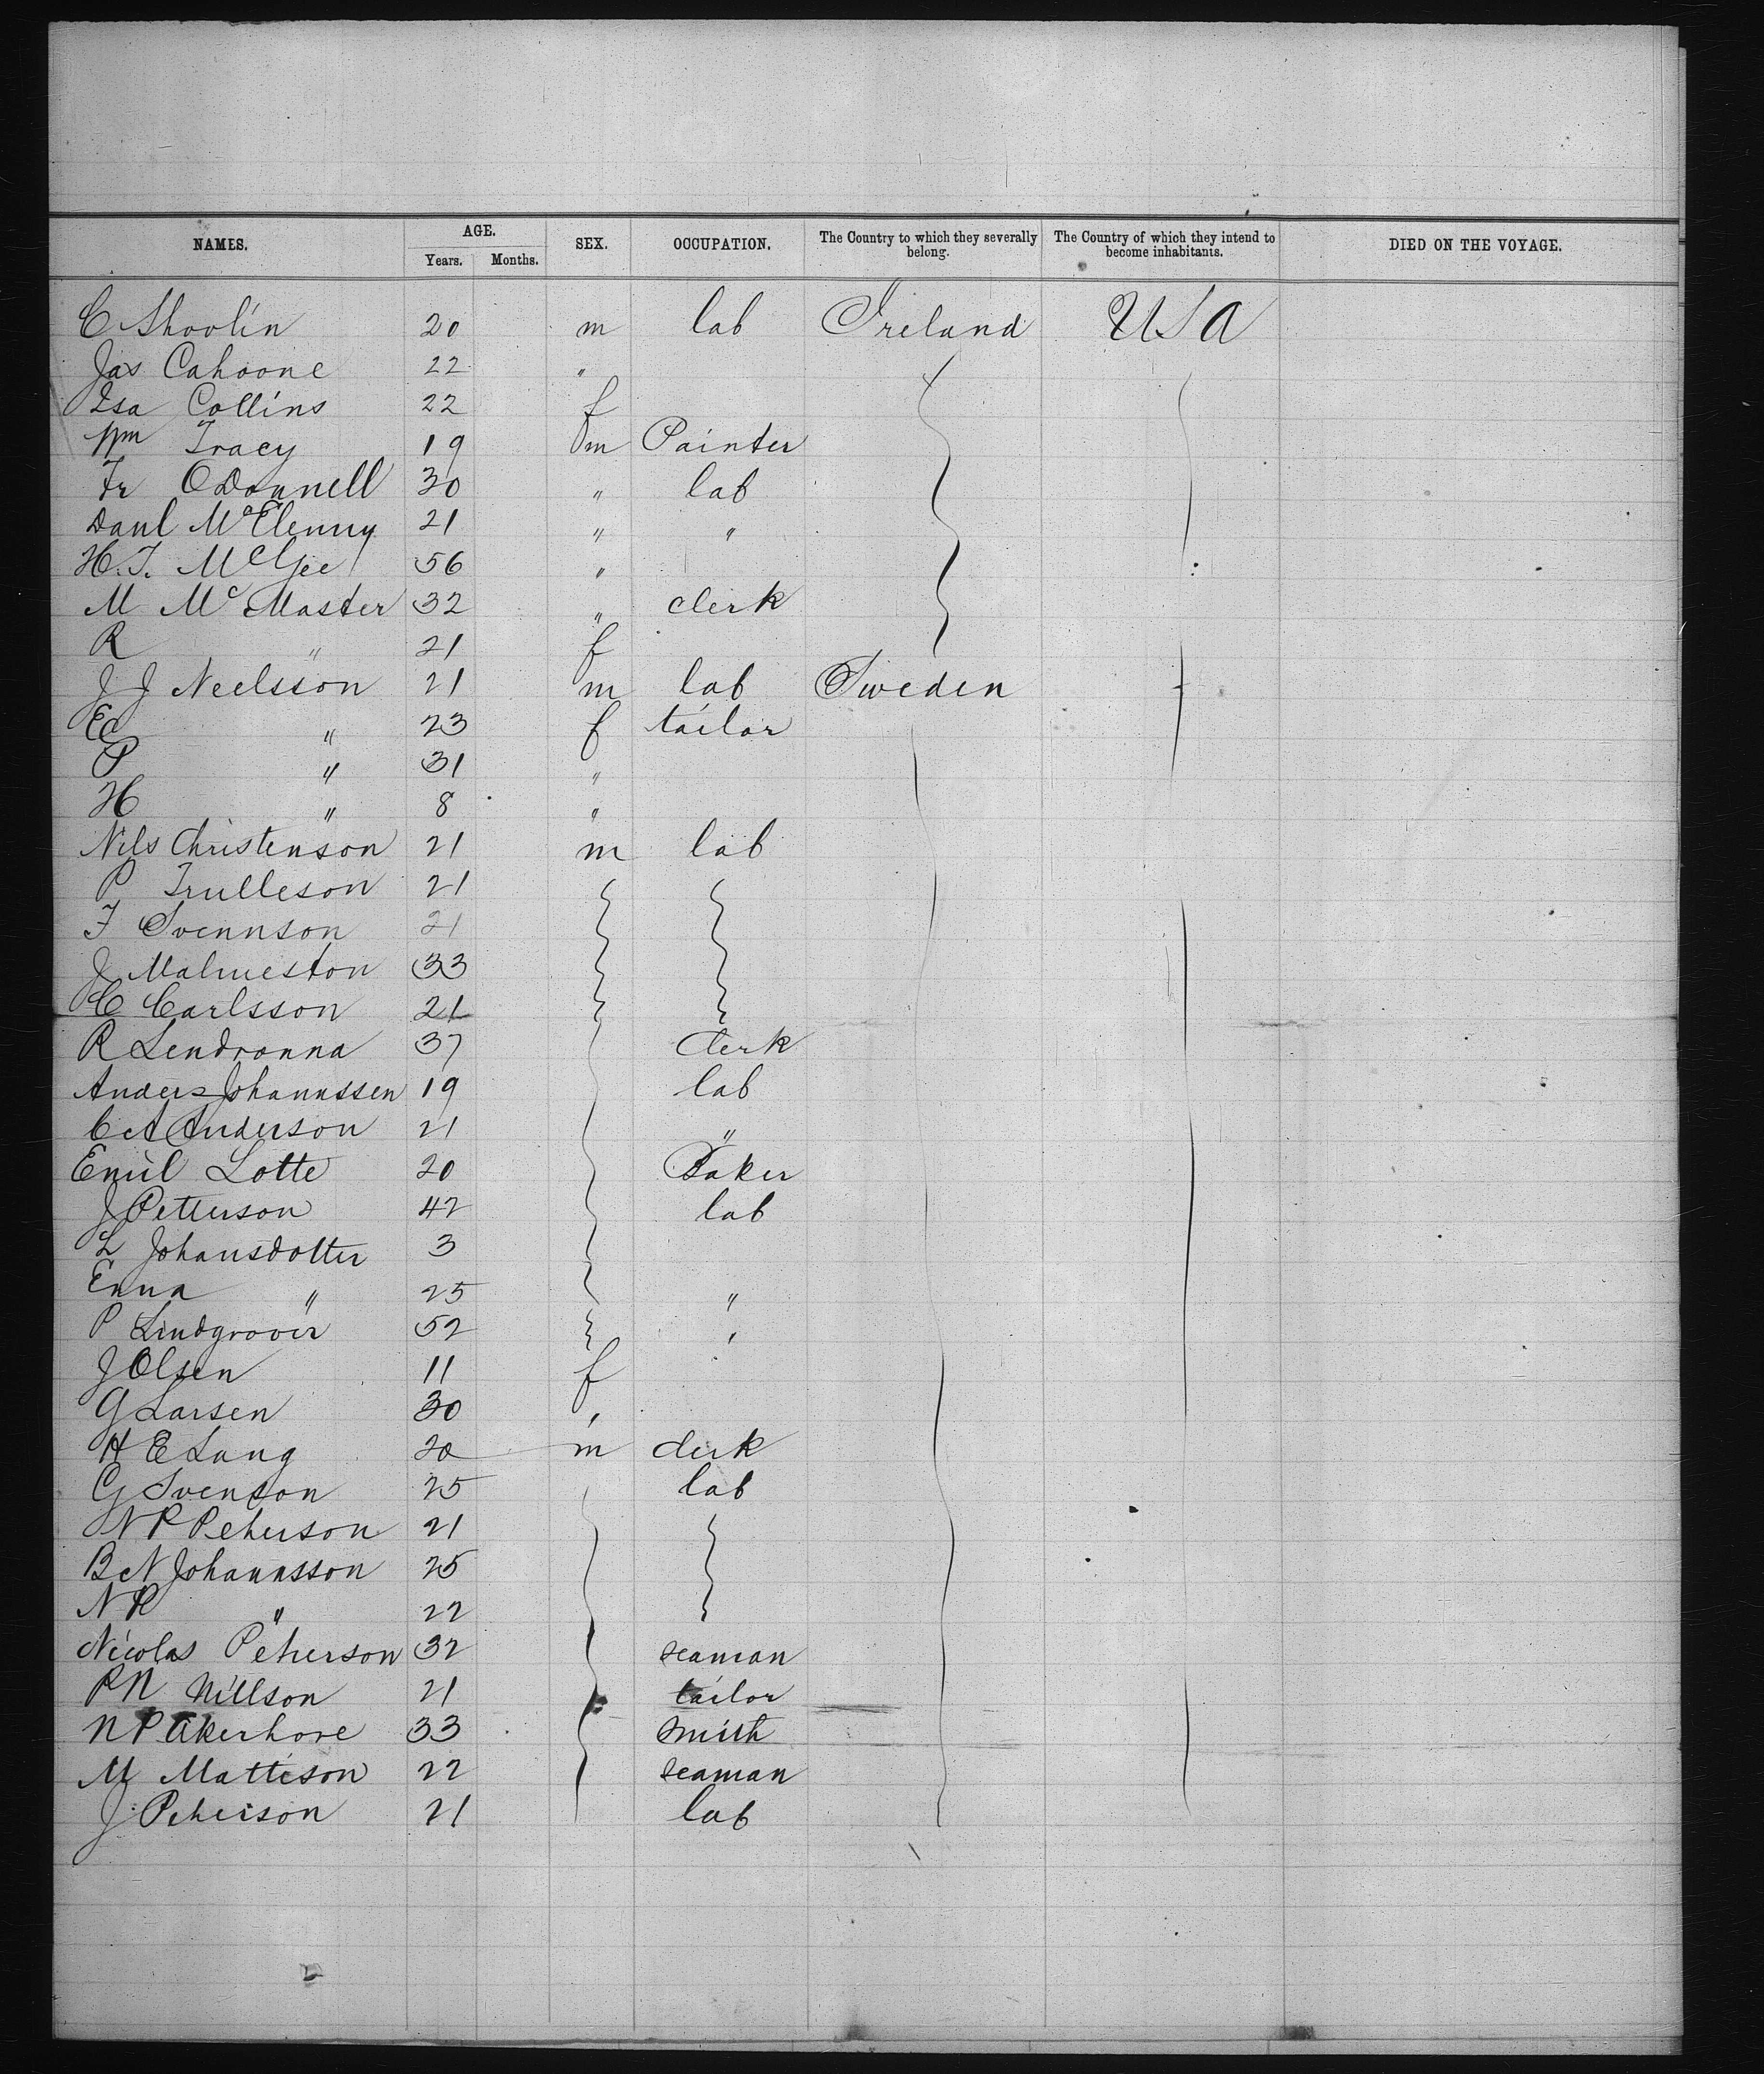 NAMES. AGE. SEX. OCCUPATION. The Country to which they severally belong. The Country of which they intend to become inhabitants. DIED ON THE VOYAGE.
Years. Months.
C Shovlin 20 m lab Ireland USA
Jas Cahoone 22 "
Isa Collins 22 f
Wm Tracy 19 m Painter
Fr ODonnell 30 " lab
Danl McElenny 21 " "
H. T. McGee 56 "
M McMaster 32 " clerk
R " 21 f
J J Neelsson 21 m lab Sweden
Ed " 23 f tailor
P " 31 "
H " 8 "
Nils Christenson 21 m lab
P Trulleson 21
F Svennson 21
J Malmeston 33
C Carlsson 21
R Lendronna 37 Clerk
Anders Johannssen 19 lab
C A Anderson 21 "
Emil Lotte 20 Baker
J Petterson 42 lab
L Johansdotter 3
Enna " 25 "
P Lindgrover 52 "
J Olsen 11 f
G Larsen 30 "
H E Lang 20 m clerk
G Svenson 25 lab
N P Peherson 21
B N Johannsson 25
N P " 22
Nicolas Peherson 32 seaman
P N Nillson 21 tailor
N P Akerhove 33 smith
M Mattison 22 seaman
J Peherson 21 lab